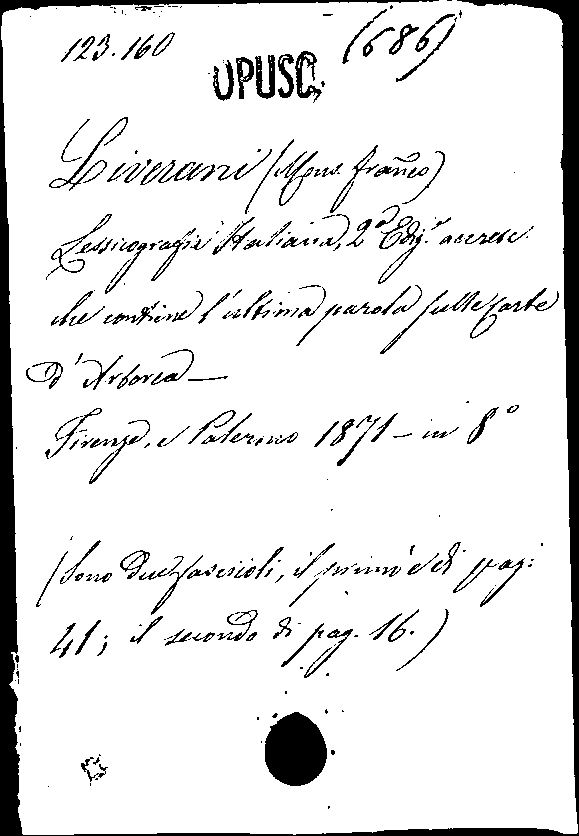 123.160 (686)
OPUSC.
Liverani (Mons. Franco)
Lessicografia Italiana, 2ª Ediz.e accresc.
che contiene l'ultima parola sulle Carte
d'Arborea —
Firenze, e Palermo 1871 — in 8°
(Sono due fascicoli, il primo è di pag:
41; il secondo di pag. 16.)